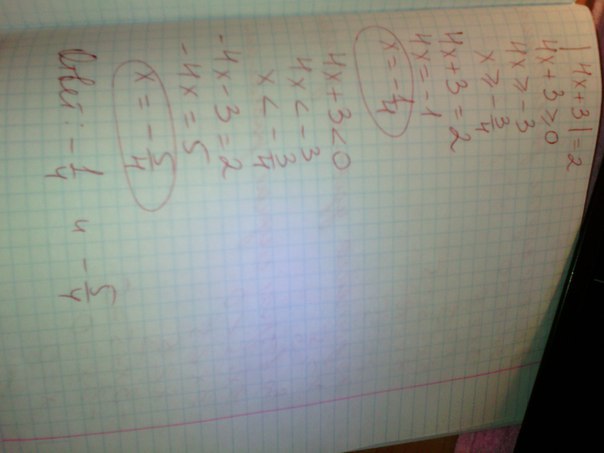 |4x+3|=2
4x+3≥0
4x≥-3
x≥-3/4
4x+3=2
4x=-1
x=-1/4
4x+3<0
4x<-3
x<-3/4
-4x-3=2
-4x=5
x=-5/4
Ответ: -1/4 и -5/4